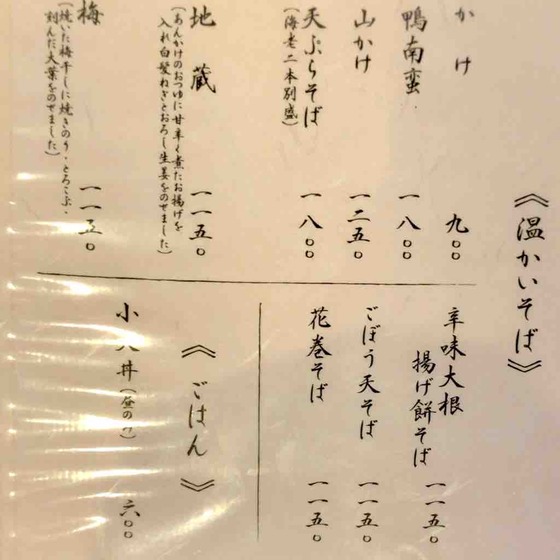 《温かいそば》
かけ 九〇〇
鴨南蛮 一八〇〇
山かけ 一二五〇
天ぷらそば 一八〇〇
(海老二本別盛)
地蔵 一一五〇
(あんかけのおつゆに甘辛く煮たお揚げを
入れ白髪ねぎとおろし生姜をのせました)
梅 一一五〇
(焼いた梅干しに焼きのり・とろこぶ・
刻んだ大葉をのせました)
辛味大根
揚げ餅そば 一一五〇
ごぼう天そば 一一五〇
花巻そば 一一五〇
《ごはん》
小丼(昼のみ) 六〇〇